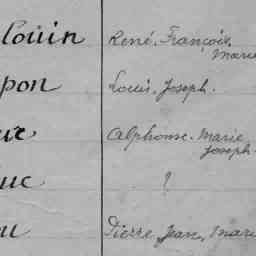 louin René, François,
Marie
pon Louis, Joseph.
Alphonse, Marie
Joseph.
uc ?
u Pierre, Jean, Marie